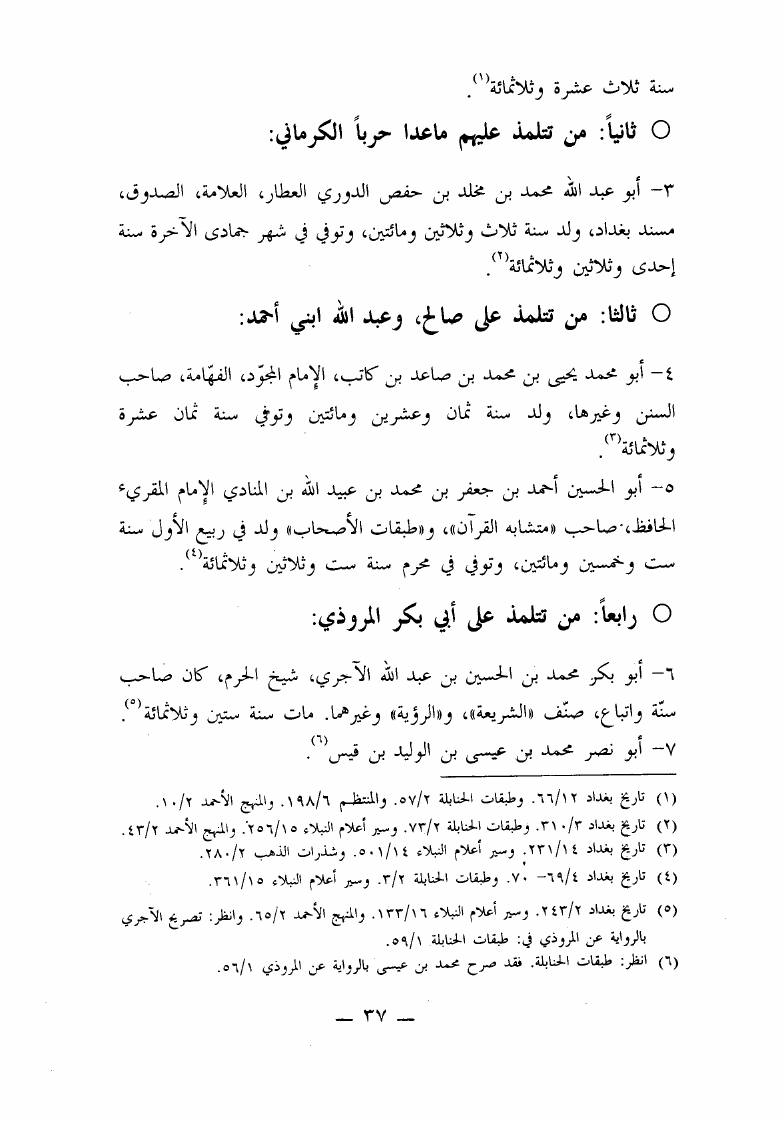 سنة ثلاث عشرة وثلاثمائة(١).
○ ثانياً: من تتلمذ عليهم ماعدا حرباً الكرماني:
٣– أبو عبد الله محمد بن مخلد بن حفص الدوري العطار، العلامة، الصدوق،
مسند بغداد، ولد سنة ثلاث وثلاثين ومائتين، وتوفي في شهر جمادى الآخرة سنة
إحدى وثلاثين وثلاثمائة(٢).
○ ثالثا: من تتلمذ على صالح، وعبد الله ابني أحمد:
٤– أبو محمد يحيى بن محمد بن صاعد بن كاتب، الإمام المجوّد، الفهّامة، صاحب
السنن وغيرها، ولد سنة ثمان وعشرين ومائتين وتوفي سنة ثمان عشرة
وثلاثمائة(٣).
٥– أبو الحسين أحمد بن جعفر بن محمد بن عبيد الله بن المنادي الإمام المقريء
الحافظ، صاحب «متشابه القرآن»، و«طبقات الأصحاب» ولد في ربيع الأول سنة
ست وخمسين ومائتين، وتوفي في محرم سنة ست وثلاثين وثلاثمائة(٤).
○ رابعاً: من تتلمذ على أبي بكر المروذي:
٦– أبو بكر محمد بن الحسين بن عبد الله الآجري، شيخ الحرم، كان صاحب
سنّة واتباع، صنّف «الشريعة»، و«الرؤية» وغيرهما. مات سنة ستين وثلاثمائة(٥).
٧– أبو نصر محمد بن عيسى بن الوليد بن قيس(٦).
(١) تاريخ بغداد ٦٦/١٢. وطبقات الحنابلة ٥٧/٢. والمنتظم ١٩٨/٦. والمنهج الأحمد ١٠/٢.
(٢) تاريخ بغداد ٣١٠/٣. وطبقات الحنابلة ٧٣/٢. وسير أعلام النبلاء ٢٥٦/١٥. والمنهج الأحمد ٤٣/٢.
(٣) تاريخ بغداد ٢٣١/١٤. وسير أعلام النبلاء ٥٠١/١٤. وشذرات الذهب ٢٨٠/٢.
(٤) تاريخ بغداد ٦٩/٤– ٧٠. وطبقات الحنابلة ٣/٢. وسير أعلام النبلاء ٣٦١/١٥.
(٥) تاريخ بغداد ٢٤٣/٢. وسير أعلام النبلاء ١٣٣/١٦. والمنهج الأحمد ٦٥/٢. وانظر: تصريح الآجري
بالرواية عن المروذي في: طبقات الحنابلة ٥٩/١.
(٦) انظر: طبقات الحنابلة. فقد صرح محمد بن عيسى بالرواية عن المروذي ٥٦/١.
— ٣٧ —